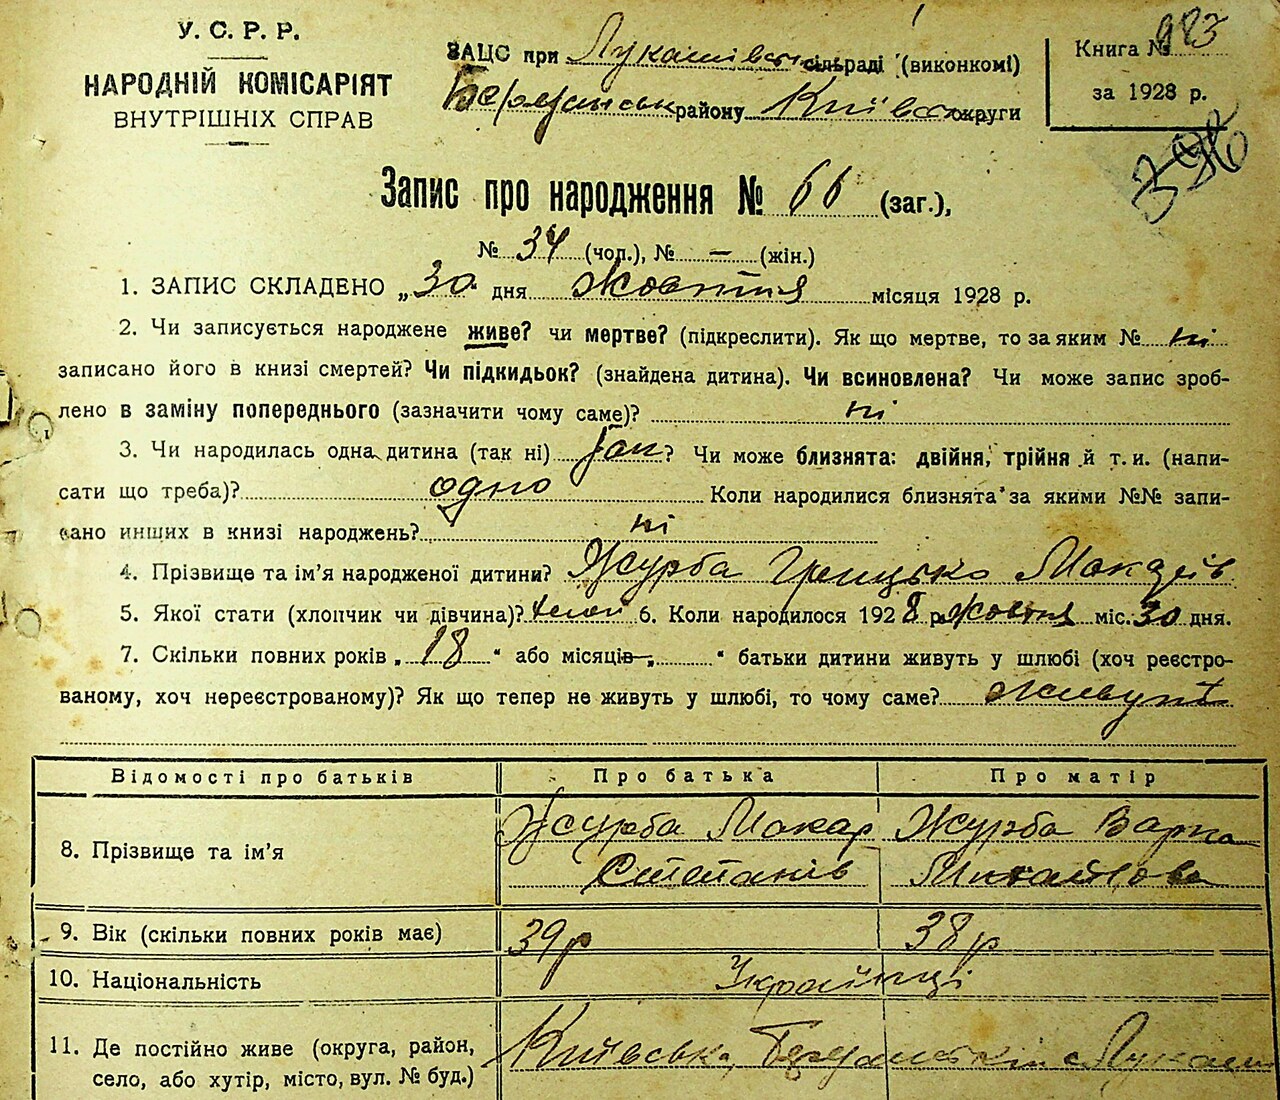 У. С. Р. Р.
НАРОДНІЙ КОМІСАРІЯТ
ВНУТРІШНІХ СПРАВ
ЗАЦС при Лукашівськ сільраді (виконкомі)
районуКиївськ округи
Книга № 983
за 1928 р.
396
Запис про народження № 66 (заг.),
№ 34 (чол.), № — (жін.)
1. ЗАПИС СКЛАДЕНО „30 дня Жовтня місяця 1928 р.
2. Чи записується народжене живе? чи мертве? (підкреслити). Як що мертве, то за яким № ні
записано його в книзі смертей? Чи підкидьок? (знайдена дитина). Чи всиновлена? Чи може запис зроб-
лено в заміну попереднього (зазначити чому саме)? ні
3. Чи народилась одна дитина (так ні) Так? Чи може близнята: двійня, трійня й т. и. (напи-
сати що треба)? одно Коли народилися близнята за якими №№ запи-
сано инших в книзі народжень? ні
4. Прізвище та ім’я народженої дитини? Журба Грицько Макарів
5. Якої стати (хлопчик чи дівчина)? 6. Коли народилося 1928 р. Жовтня міс. 30 дня.
7. Скільки повних років „18“ або місяців „ “ батьки дитини живуть у шлюбі (хоч реєстро-
ваному, хоч нереєстрованому)? Як що тепер не живуть у шлюбі, то чому саме? живуть
Відомості про батьків Про батька Про матір
8. Прізвище та ім’я Журба Макар Степанів Журба Варка Михайлова
9. Вік (скільки повних років має) 39 р 38 р
10. Національність Українці
11. Де постійно живе (округа, район, Київська, с Лукаш
село, або хутір, місто, вул. № буд.)